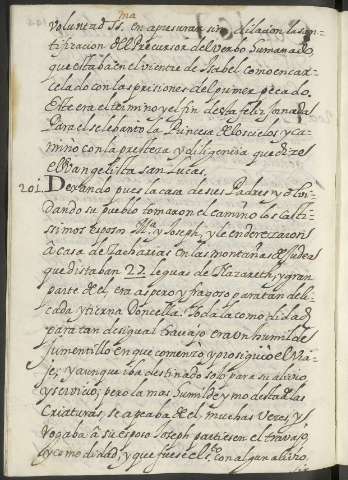 Voluntad SS.ma en apresurar sin dilacion la san-
tificacion del Precursor del verbo humanado
que estaba en el vientre de Isabel como encar-
celado con las prisiones del primer pecado.
Este era el termino y el fin desta feliz Jornada
Para el se lebanto la Princesa de los cielos y ca-
mino con la presteza y diligencia que dize el
el Evangelista san Lucas.
201. Dexando pues la casa de sus Padres y olbi-
dando su pueblo tomaron el camino los casti-
ssimos esposos M.ª y Joseph, y le enderezaron
à casa de Zacharias en las montañas de Judea
que distaban 27 leguas de Nazareth, y gran
parte del era aspero y fragoso para tan deli-
cada y tierna Doncella. Toda la comodidad
para tan desigual travajo era un humilde
jumentillo en que comenzo y prosiguio el via-
je, y aunque iba destinado solo para su alivio
y servicio, pero la mas humilde y modesta de las
criaturas se apeaba del muchas veces, y
rogaba à su esposo Joseph partiesen el travajo
y comodidad, y que fuese el s.to con algun alivio